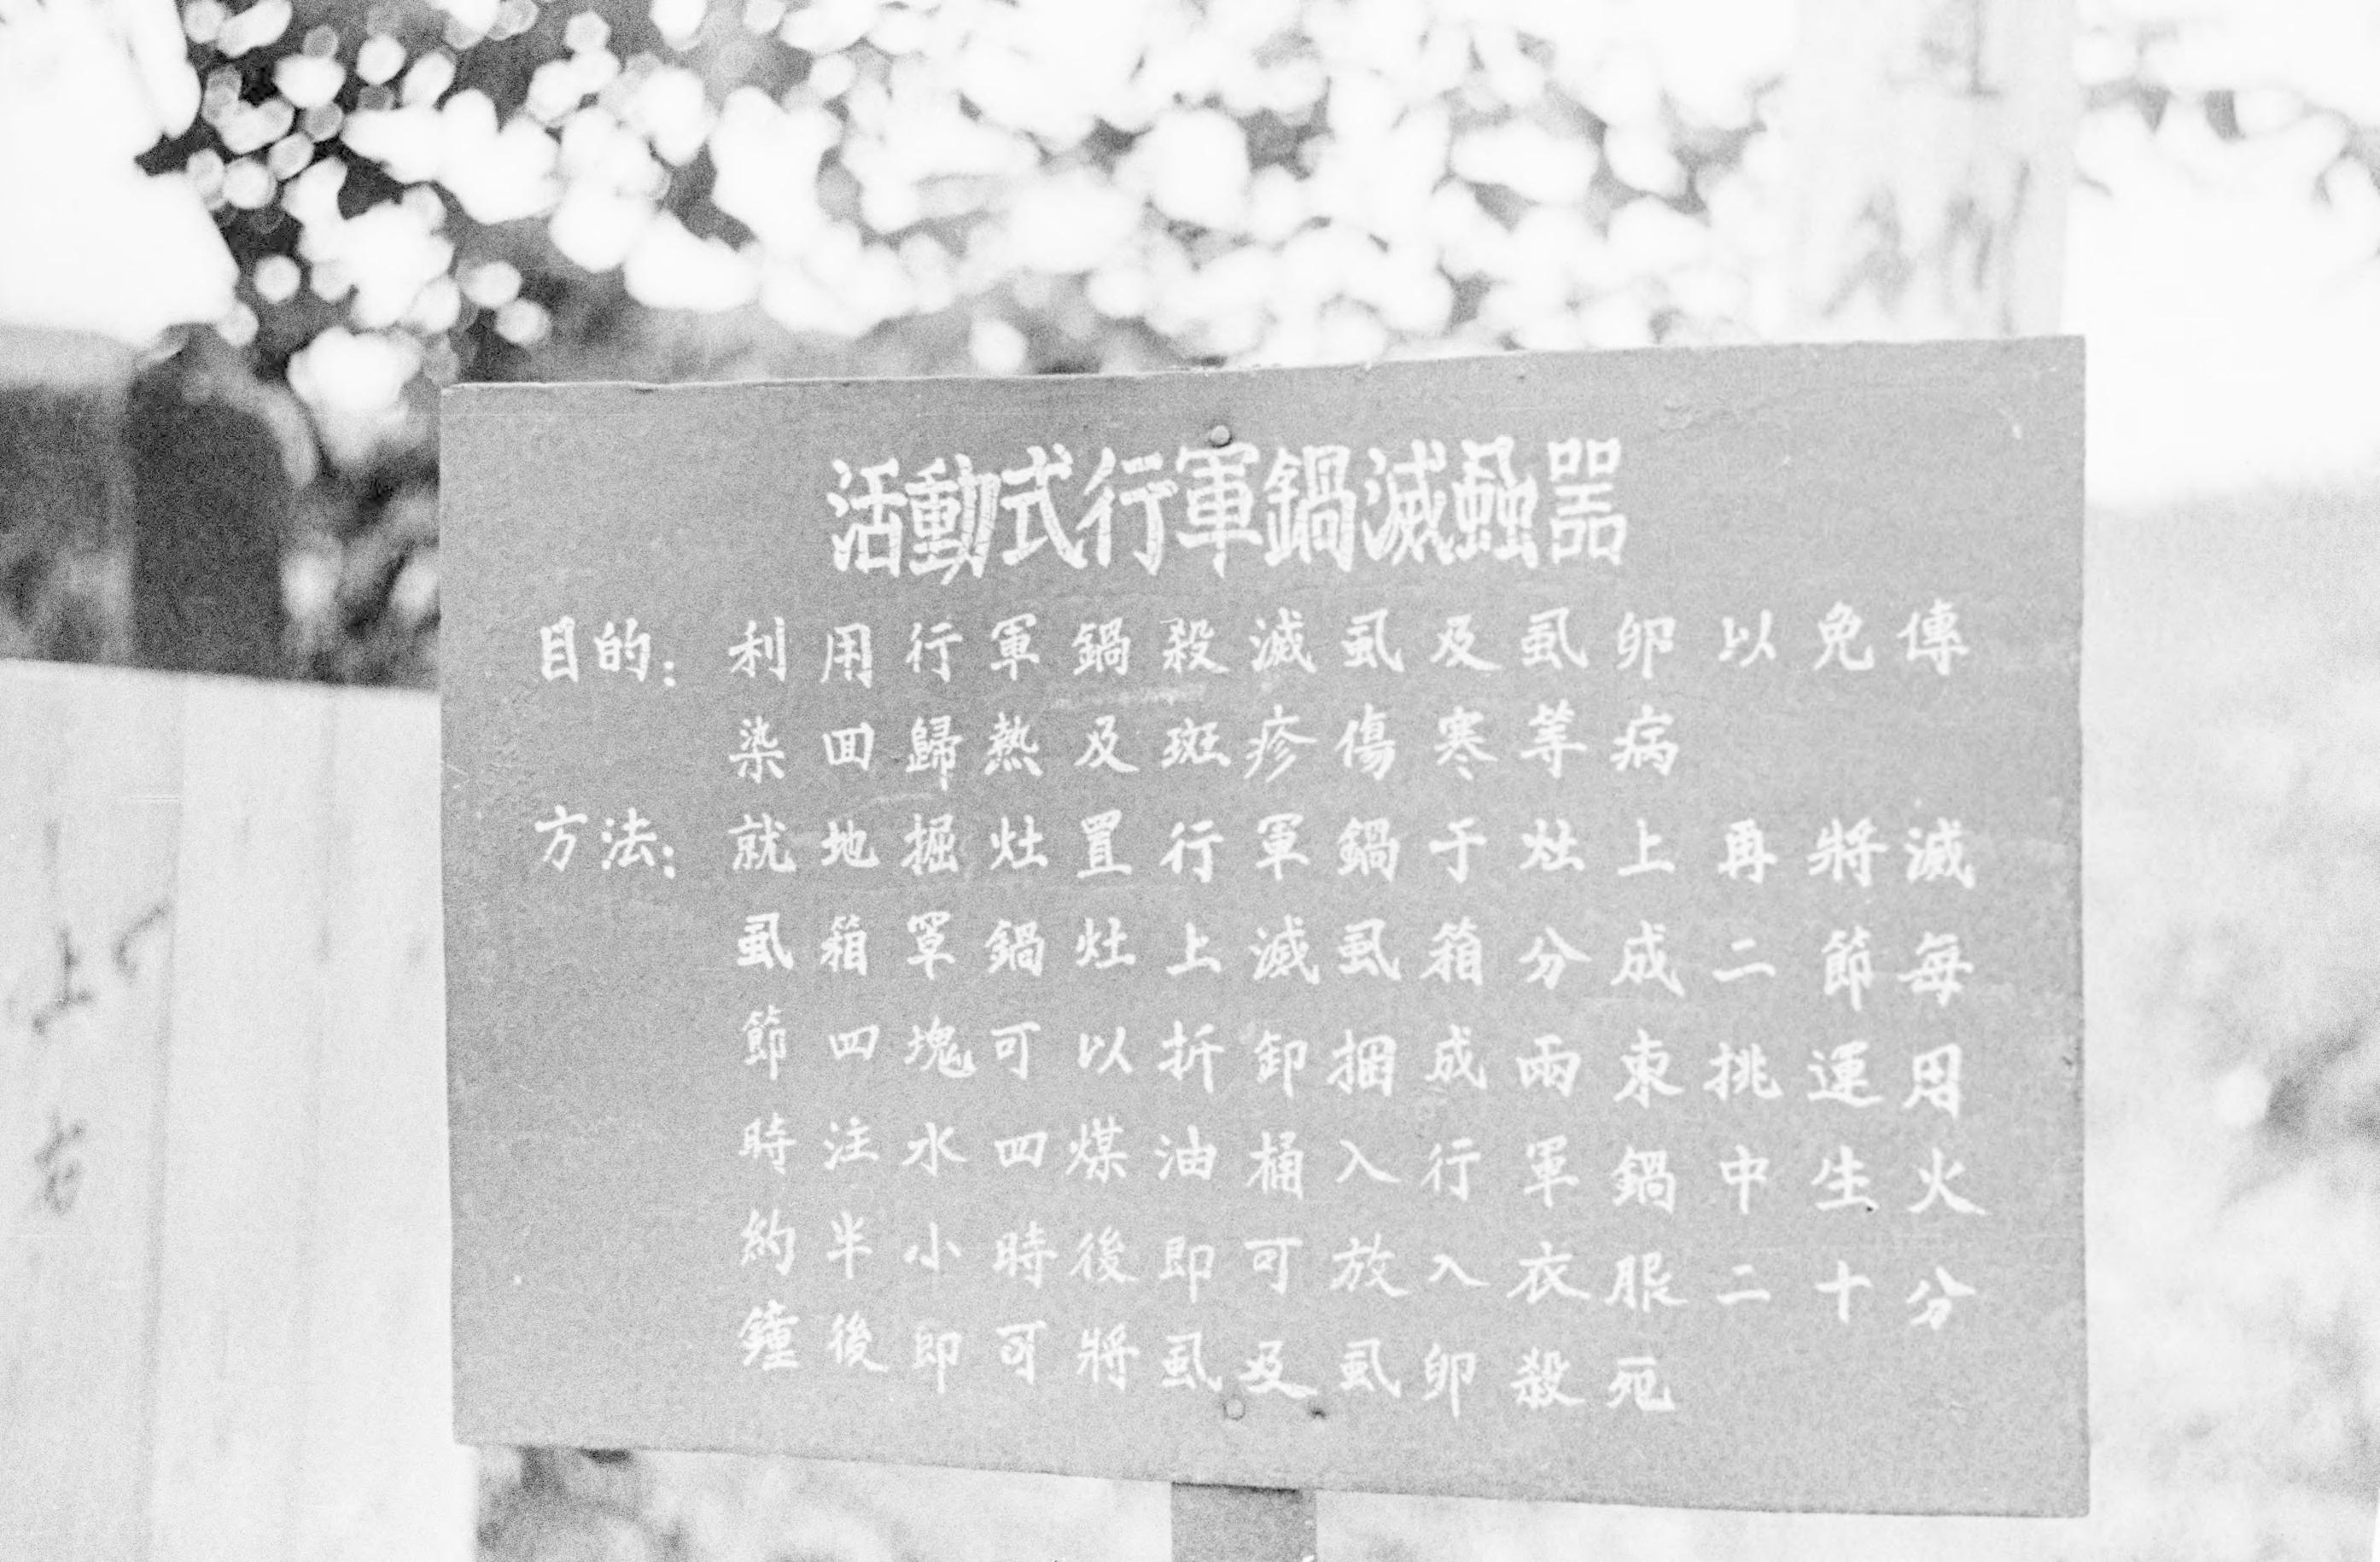 活動式行軍鍋滅蝨器
目的：利用行軍鍋殺滅虱及虱卵以免傳
染回歸熱及斑疹傷寒等病
方法：就地掘灶置行軍鍋于灶上再將滅
虱箱罩鍋灶上滅虱箱分成二節每
節四塊可以拆卸捆成兩束挑運用
時注水四煤油桶入行軍鍋中生火
約半小時後即可放入衣服二十分
鐘後即可將虱及虱卵殺死
上
右